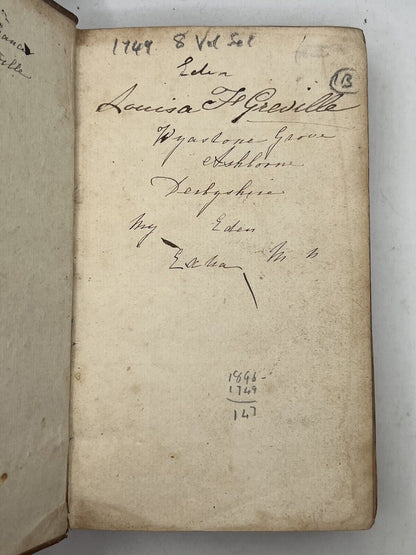 1749 8 Vol Set
1B
Eden
Louisa F Greville
Wyastone Grove
Ashborne
Derbyshire
My Eden
1896-
1749
147